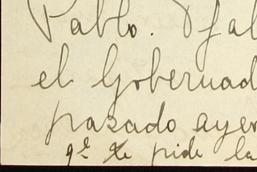 Pablo. Ojal
el Gobernad
pasado ayer
qe te pide la